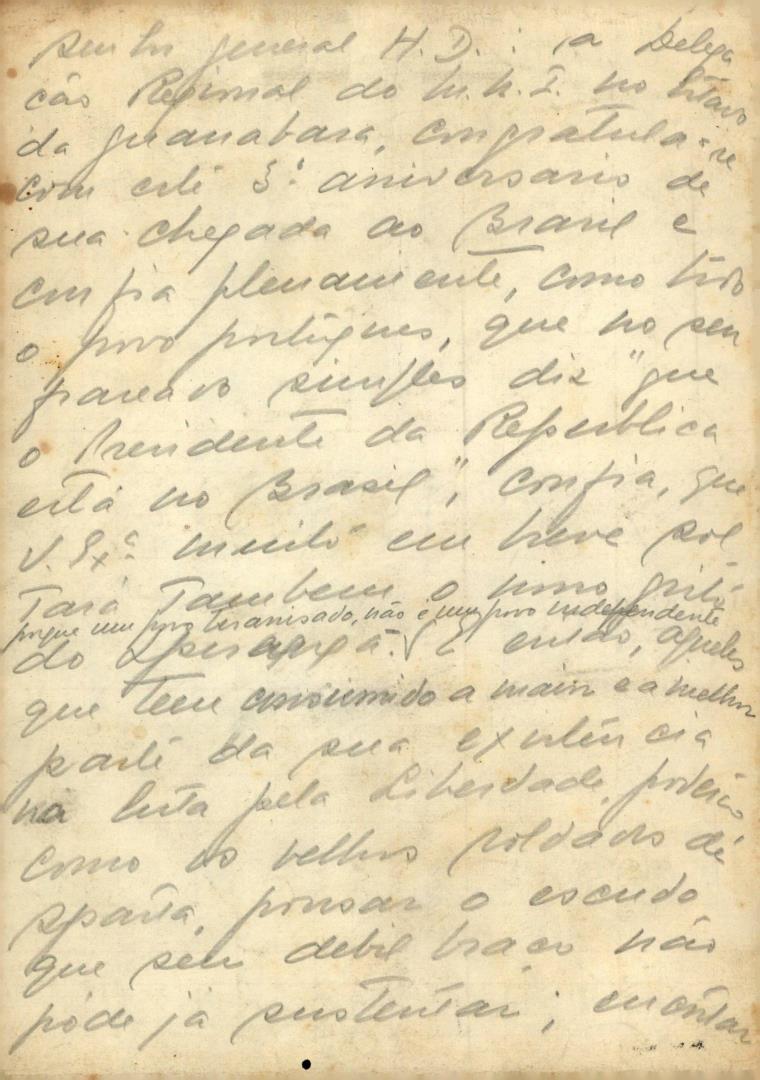 Senhor general H. D.: a Delega
ção Regional do M. N. I. no Estado
da Guanabara, congratula-se
com este 3º aniversario de
sua chegada ao Brasil e
confia plenamente, como todo
o povo português, que no seu
simples diz "que
o Presidente da Republica
está no Brasil", confia, que
V. Exª muito em breve sol
tará tambem o novo grito
porque um povo tiranisado, não é um povo independente
do Ipiranga. E então, aqueles
que teem consumido a maior e a melhor
parte da sua existência
na luta pela Liberdade, poderão
como os velhos soldados de
Sparta, pousar o escudo
que seu debil braço não
póde já sustentar; encontar